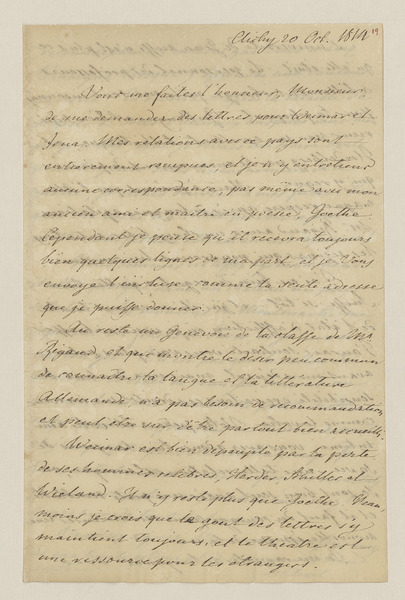 Clichy 20 Oct. 1814
19
Vous me faites l'honneur, Monsieur,
de me demander des lettres pour Weimar et
Jena. Mes relations avec ce pays sont
entièrement rompues, et je n'y entretiens
aucune correspondance, pas même avec mon
ancien ami et maître en poésie, Goethe.
Cependant je pense qu'il recevra toujours
bien quelques lignes de ma part et je Vous
envoye l'incluse, comme la seule adresse
que je puisse donner.
Au reste un Genevois de la classe de Mr
Rigaud, et qui montre le désir peu commun
de connaître la langue et la littérature
Allemande n'a pas besoin de recommandation
et peut être sûr d'être partout bien accueilli.
Weimar est bien dépeuplé par la perte
de ses hommes célèbres, Herder Schiller et
Wieland. Il n'y reste plus que Goethe. Néan
moins je crois que le gout des lettres s'y
maintient toujours, et le théatre est
une ressource pour les étrangers.